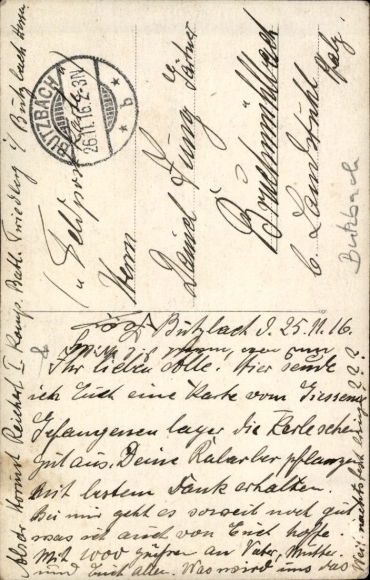 BUTZBACH
26.11.16.2-3N
* b *
"Feldpost"
Herrn
Daniel Jung
Bruchmühlbach
b. Landstuhl
Pfalz
Butzbach
Butzbach d. 25.11.16.
Ihr lieben alle. Hier sende
ich Euch eine Karte vom Giessener
Gefangenen lager die Kerle sehen
gut aus. Deine pflanzen
mit bestem Dank erhalten.
Bei mir geht es soweit noch gut
was ich auch von Euch hoffe.
Mit 1000 grüßen an Vater, Mutter
und Euch allen. Was wird uns das
Weihnachtsfest bringen???
Abs. Reichert I Komp. Batl. Friedberg i/ Butzbach Hessen